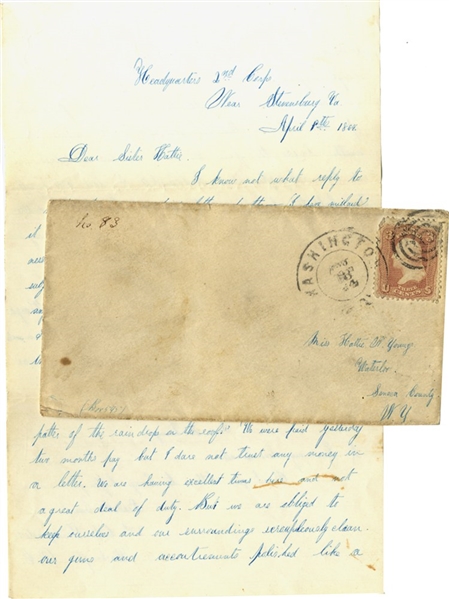 Headquarters 2nd Corps
Near Stevensburg Va
April 8th 1864.
Dear Sister Hattie.
I know not what reply to
it
No. 83
WASHINGTON
U THREE CENTS S
Miss Hattie Young
Waterloo
Seneca County
N.Y
patter of the raindrop on the roof. We were paid yesterday
two months pay but I dare not trust any money in
a letter. We are having excellent times here and not
a great deal of duty. But we are obliged to
keep ourselves and our surroundings scrupulously clean.
our guns and accoutrements polished like a